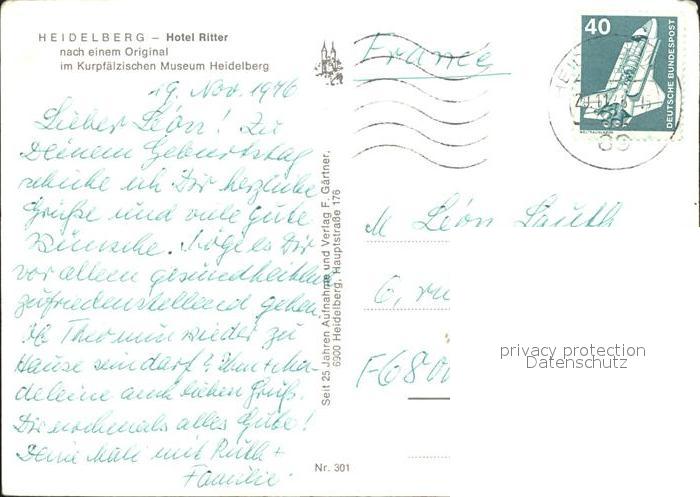 HEIDELBERG – Hotel Ritter
nach einem Original
im Kurpfälzischen Museum Heidelberg
19. Nov. 1976
Lieber Léon! Zu
Deinem Geburtstag
schicke ich Dir herzliche
Grüße und viele gute
Wünsche. Möge es Dir
vor allem gesundheitlich
zufriedenstellend gehen.
Ob Theo nun wieder zu
Hause sein darf? Ihm + Ma-
deleine auch lieben Gruß.
Dir nochmals alles Gute!
Deine Mali mit Ruth +
Familie.
Seit 25 Jahren Aufnahme und Verlag F. Gärtner,
6900 Heidelberg, Hauptstraße 176
Nr. 301
France
40
DEUTSCHE BUNDESPOST
M Léon Lauth
6, ru
F-6800
privacy protection
Datenschutz